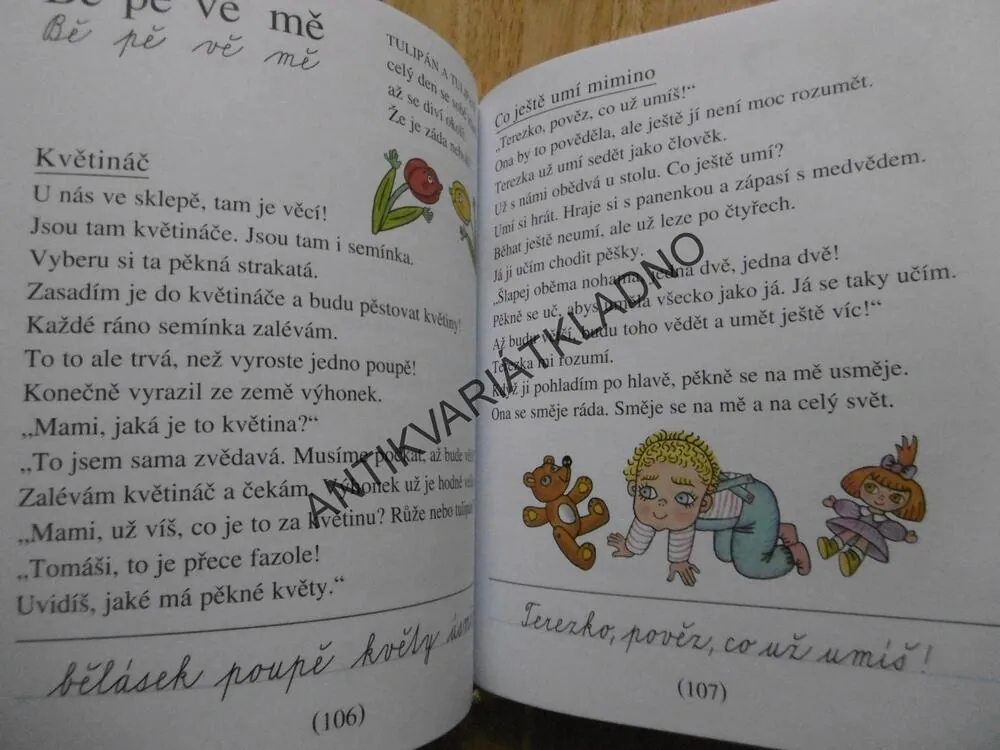 Bě pě vě mě
Bě pě vě mě
TULIPÁN A
celý den se sobě
až se diví okolí.
Že je záda
Květináč
U nás ve sklepě, tam je věcí!
Jsou tam květináče. Jsou tam i semínka.
Vyberu si ta pěkná strakatá.
Zasadím je do květináče a budu pěstovat květiny!
Každé ráno semínka zalévám.
To to ale trvá, než vyroste jedno poupě!
Konečně vyrazil ze země výhonek.
„Mami, jaká je to květina?“
„To jsem sama zvědavá. Musíme počkat, až bude
Zalévám květináč a čekám. Výhonek už je hodně
„Mami, už víš, co je to za květinu? Růže nebo tulipán?
„Tomáši, to je přece fazole!
Uvidíš, jaké má pěkné květy.“
bělásek poupě květy
(106)
Co ještě umí mimino
„Terezko, pověz, co už umíš!“
Ona by to pověděla, ale ještě jí není moc rozumět.
Terezka už umí sedět jako člověk.
Už s námi obědvá u stolu. Co ještě umí?
Umí si hrát. Hraje si s panenkou a zápasí s medvědem.
Běhat ještě neumí, ale už leze po čtyřech.
Já ji učím chodit pěšky.
„Šlapej oběma nohama, jedna dvě, jedna dvě!
Pěkně se uč, abys uměla všecko jako já. Já se taky učím.
Až budu větší, budu toho vědět a umět ještě víc!“
Terezka mi rozumí.
Když ji pohladím po hlavě, pěkně se na mě usměje.
Ona se směje ráda. Směje se na mě a na celý svět.
Terezko, pověz, co už umíš!
(107)
ANTIKVARIÁTKLADNO